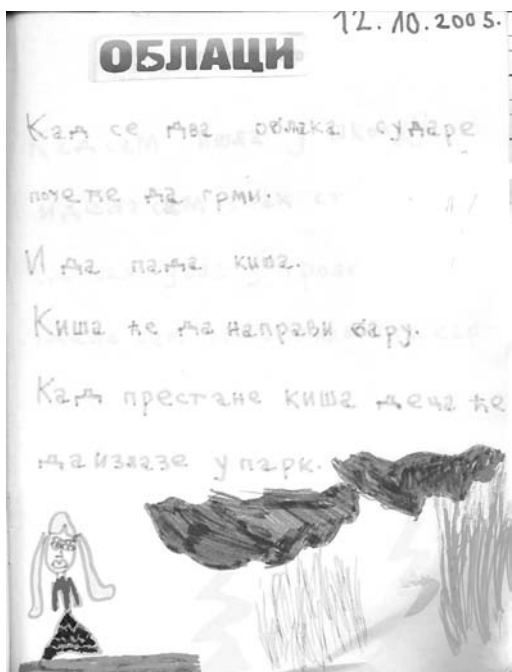 12.10.2005.
ОБЛАЦИ
Кад се два облака сударе
почеће да грми.
И да пада киша.
Киша ће да направи бару.
Кад престане киша деца ће
да излазе у парк.